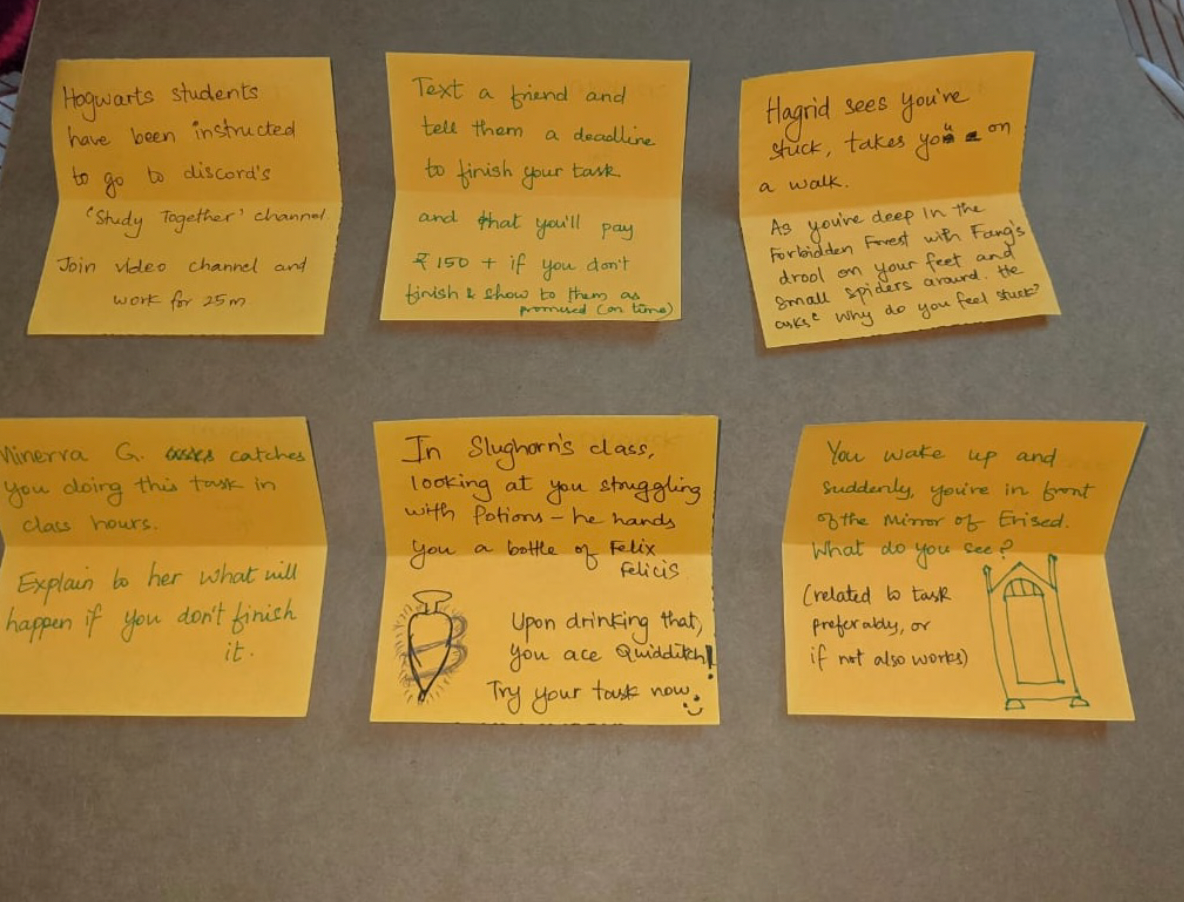 Hogwarts students
have been instructed
to go to discord's
'Study Together' channel
Join video channel and
work for 25m
Text a friend and
tell them a deadline
to finish your task
and that you'll pay
₹150 + if you don't
finish & show to them as
promised (on time)
Hagrid sees you've
stuck, takes you on
a walk.
As you're deep in the
Forbidden Forest with Fang's
drool on your feet and
small spiders around. He
asks "Why do you feel stuck?
Minerva G. catches
you doing this task in
class hours.
Explain to her what will
happen if you don't finish
it.
In Slughorn's class,
looking at you struggling
with Potions – he hands
you a bottle of Felix
Felicis
Upon drinking that,
you ace Quidditch!
Try your task now :)
You wake up and
suddenly, you're in front
of the Mirror of Erised.
What do you see?
(related to task
preferably, or
if not also works)